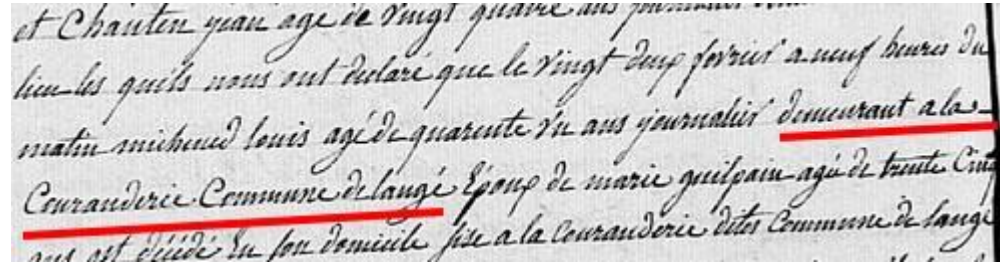 et Chanten jean agé de vingt quatre ans journalier
lieu les quels nous ont declaré que le vingt deux fevrier a neuf heures du
matin michened louis agé de quarente un ans journalier demeurant a la
Couranderie Commune de langé Epoux de marie guilpain agée de trente Cinq
ans est décédé en son domicile sise a la Couranderie dites Commune de langé